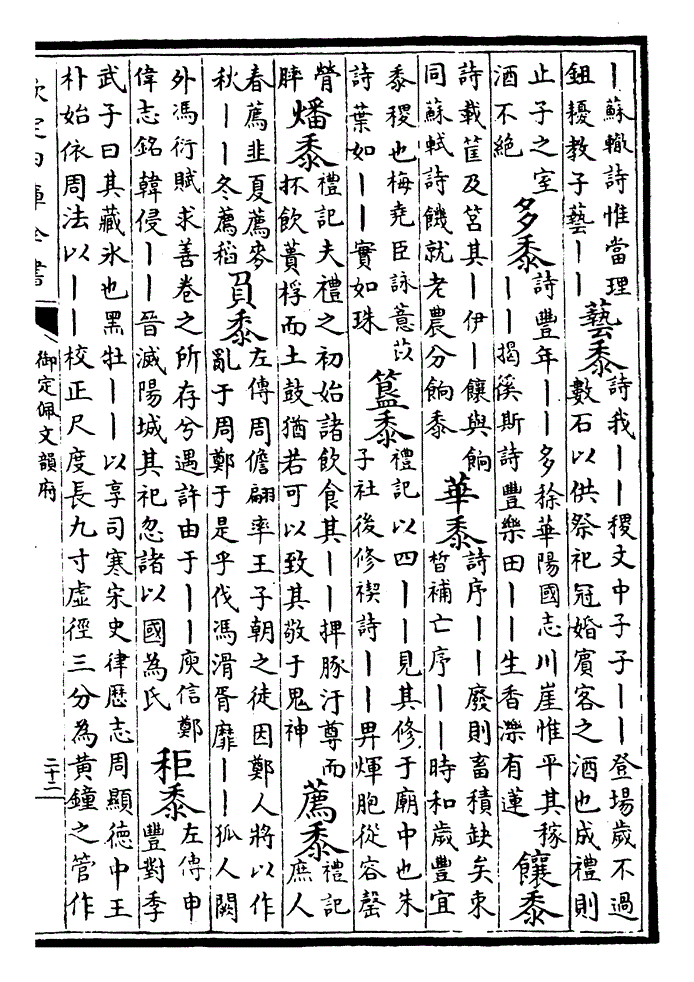 丨蘇轍詩惟當理
鉏耰教子藝丨丨
藝黍
詩我丨丨稷文中子子丨丨登場歲不過
數石以供祭祀冠婚賓客之酒也成禮則
止子之室
酒不絕
多黍
詩豐年丨丨多稌華陽國志川崖惟平其稼
丨丨揭徯斯詩豐樂田丨丨生香濼有蓮
饟黍
詩載筐及筥其丨伊丨饟與餉
同蘇軾詩饑就老農分餉黍
華黍
詩序丨丨廢則畜積缺矣束
晳補亡序丨丨時和歲豐宜
黍稷也梅堯臣詠薏苡
詩葉如丨丨實如珠
簋黍
禮記以四丨丨見其修于廟中也朱
子社後修禊詩丨丨畀煇胞從容罄
膋
膟
燔黍
禮記夫禮之初始諸飲食其丨丨捭豚汙尊而
抔飲蕢桴而土鼓猶若可以致其敬于鬼神
薦黍
禮記
庶人
春薦韭夏薦麥
秋丨丨冬薦稻
負黍
左傳周儋翩率王子朝之徒因鄭人將以作
亂于周鄭于是乎伐馮滑胥靡丨丨狐人闕
外馮衍賦求善卷之所存兮遇許由于丨丨庾信鄭
偉志銘韓侵丨丨晉滅陽城其祀忽諸以國為氏
秬黍
左傳申
豐對季
武子曰其藏氷也黑牡丨丨以享司寒宋史律歷志周顯德中王
朴始依周法以丨丨校正尺度長九寸虛徑三分為黃鐘之管作
欽定四庫全書
御定佩文韻府
二十二